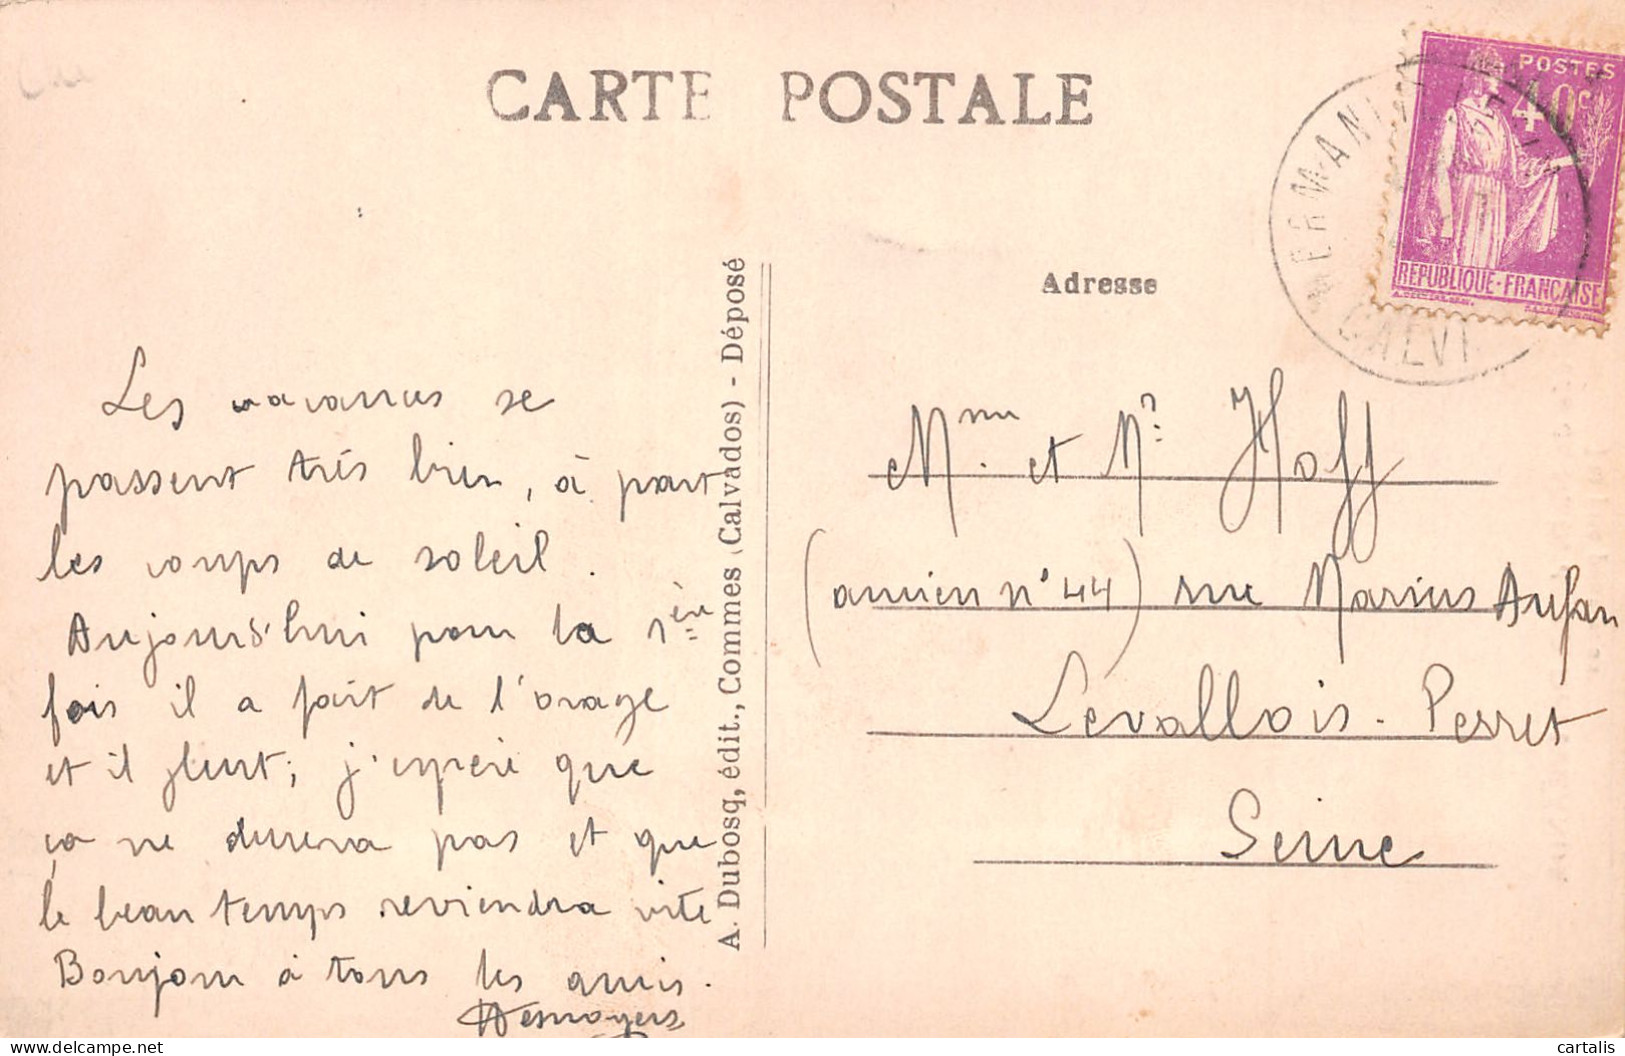 CARTE POSTALE
POSTES
40c
RÉPUBLIQUE-FRANÇAISE
VER MANVILLE
CALV
Adresse
A. Dubosq, édit., Commes (Calvados) - Déposé
Les vacances se
passent très bien, à part
les coups de soleil.
Aujours'hui pour la 1ère
fois il a fait de l'orage
et il pleut; j'espère que
ça ne durera pas et que
le beau temps reviendra vite
Bonjour à tous les amis.
Mme. et Mr Hoff
(ancien n° 44) rue Marius Aufan
Levallois-Perret
Seine
cartalis